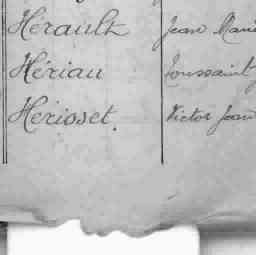 Hérault Jean Marie
Hériau Toussaint
Herisset. Victor Jean